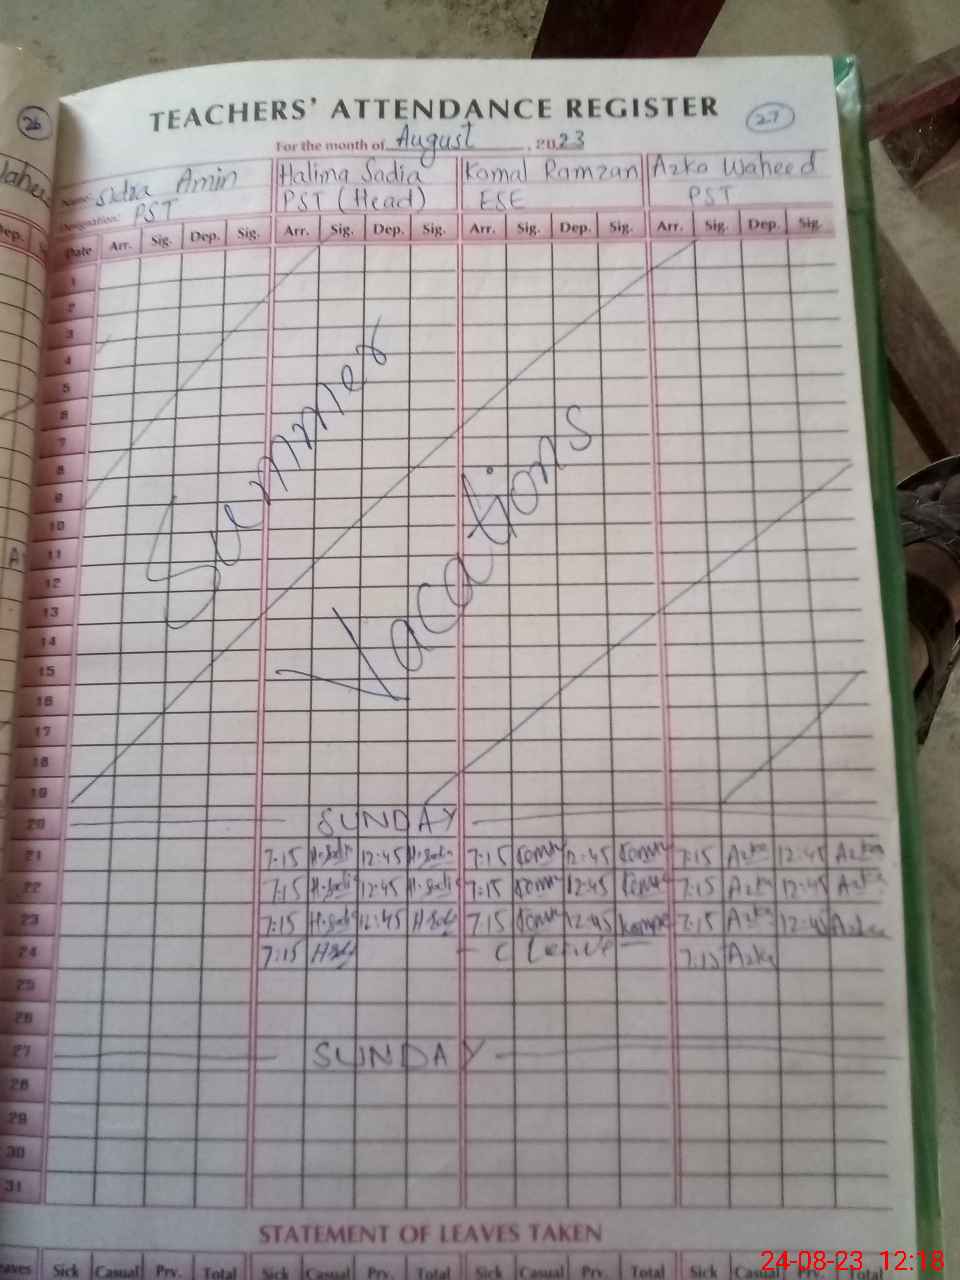 26
TEACHERS' ATTENDANCE REGISTER
27
For the month of August, 2023
Name: Sidra Amin Halima Sadia Komal Ramzan Azka Waheed
Designation: PST PST (Head) ESE PST
Date Arr. Sig. Dep. Sig. Arr. Sig. Dep. Sig. Arr. Sig. Dep. Sig. Arr. Sig. Dep. Sig.
1
2
3
4
5
6
7
8
9
10
11
12
13
14
15
16
17
18
19
Summer
Vacations
20 SUNDAY
21 7:15 H.Sadia 12:45 H.Sadia 7:15 Komal 12:45 Komal 7:15 Azka 12:45 Azka
22 7:15 H.Sadia 12:45 H.Sadia 7:15 Komal 12:45 Komal 7:15 Azka 12:45 Azka
23 7:15 H.Sadia 12:45 7:15 Komal 12:45 Komal 7:15 Azka 12:45 Azka
24 7:15 C Leave 7:15 Azka
25
26
27 SUNDAY
28
29
30
31
STATEMENT OF LEAVES TAKEN
Sick Casual Prv. Total Sick Casual Prv. Total Sick Casual Prv. Total Sick Casual Prv. Total
24-08-23 12:18